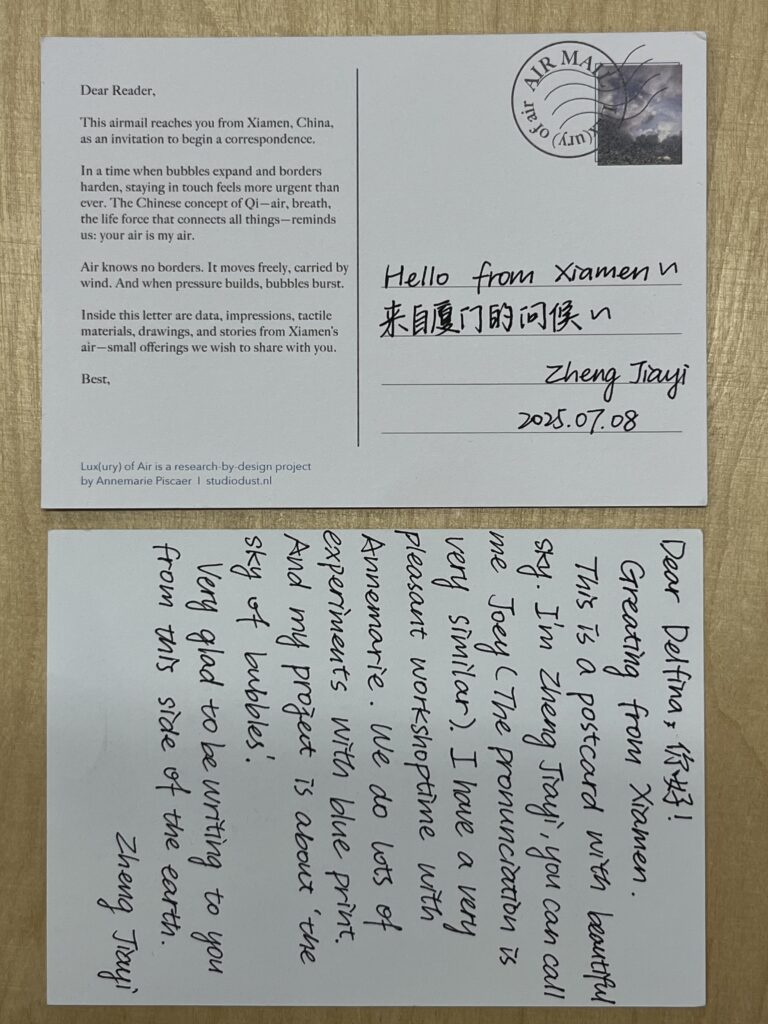 Dear Reader,
This airmail reaches you from Xiamen, China,
as an invitation to begin a correspondence.
In a time when bubbles expand and borders
harden, staying in touch feels more urgent than
ever. The Chinese concept of Qi—air, breath,
the life force that connects all things—reminds
us: your air is my air.
Air knows no borders. It moves freely, carried by
wind. And when pressure builds, bubbles burst.
Inside this letter are data, impressions, tactile
materials, drawings, and stories from Xiamen's
air—small offerings we wish to share with you.
Best,
Lux(ury) of Air is a research-by-design project
by Annemarie Piscaer | studiodust.nl
AIR MAIL
Lux(ury) of air
Hello from Xiamen~
来自厦门的问候~
Zheng Jiayi
2025.07.08
Dear Delfina, 你好!
Greating from Xiamen.
This is a postcard with beautiful
sky. I'm Zheng Jiayi, you can call
me Joey (The pronunciation is
very similar). I have a very
pleasant workshoptime with
Annemarie. We do lots of
experiments with blue print.
And my project is about 'the
sky of bubbles'.
Very glad to be writing to you
from this side of the earth.
Zheng Jiayi